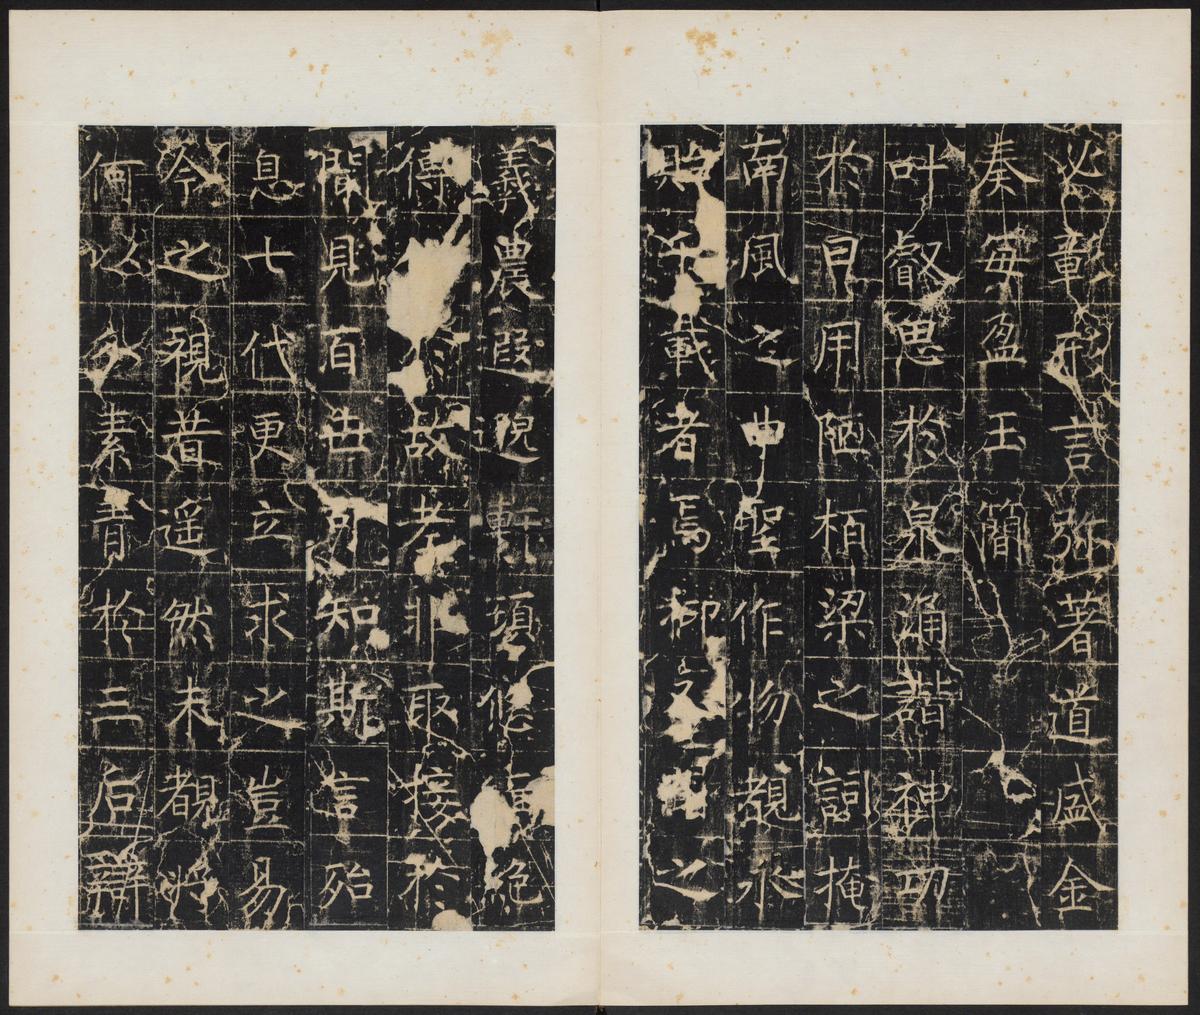 必彰言弥著道盛金
奏每盈玉簡
叶叡思於泉涌藹神功
於日用陋栢梁之詞掩
南風之曲聖作物覩永
貽千載者焉柳文之
羲農遐邈軒頊悠絶
傳故老非取接於
聞見百世可知斯言殆
息七代更立求之豈易
今之視昔遥然未覩將
何以分素青於三后辯